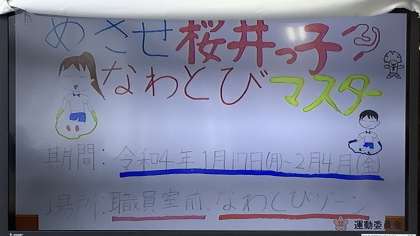 めざせ桜井っ子
なわとびマスター
期間：令和4年1月17日(月)~2月4日(金)
場所：職員室前、なわとびゾーン
運動委員会